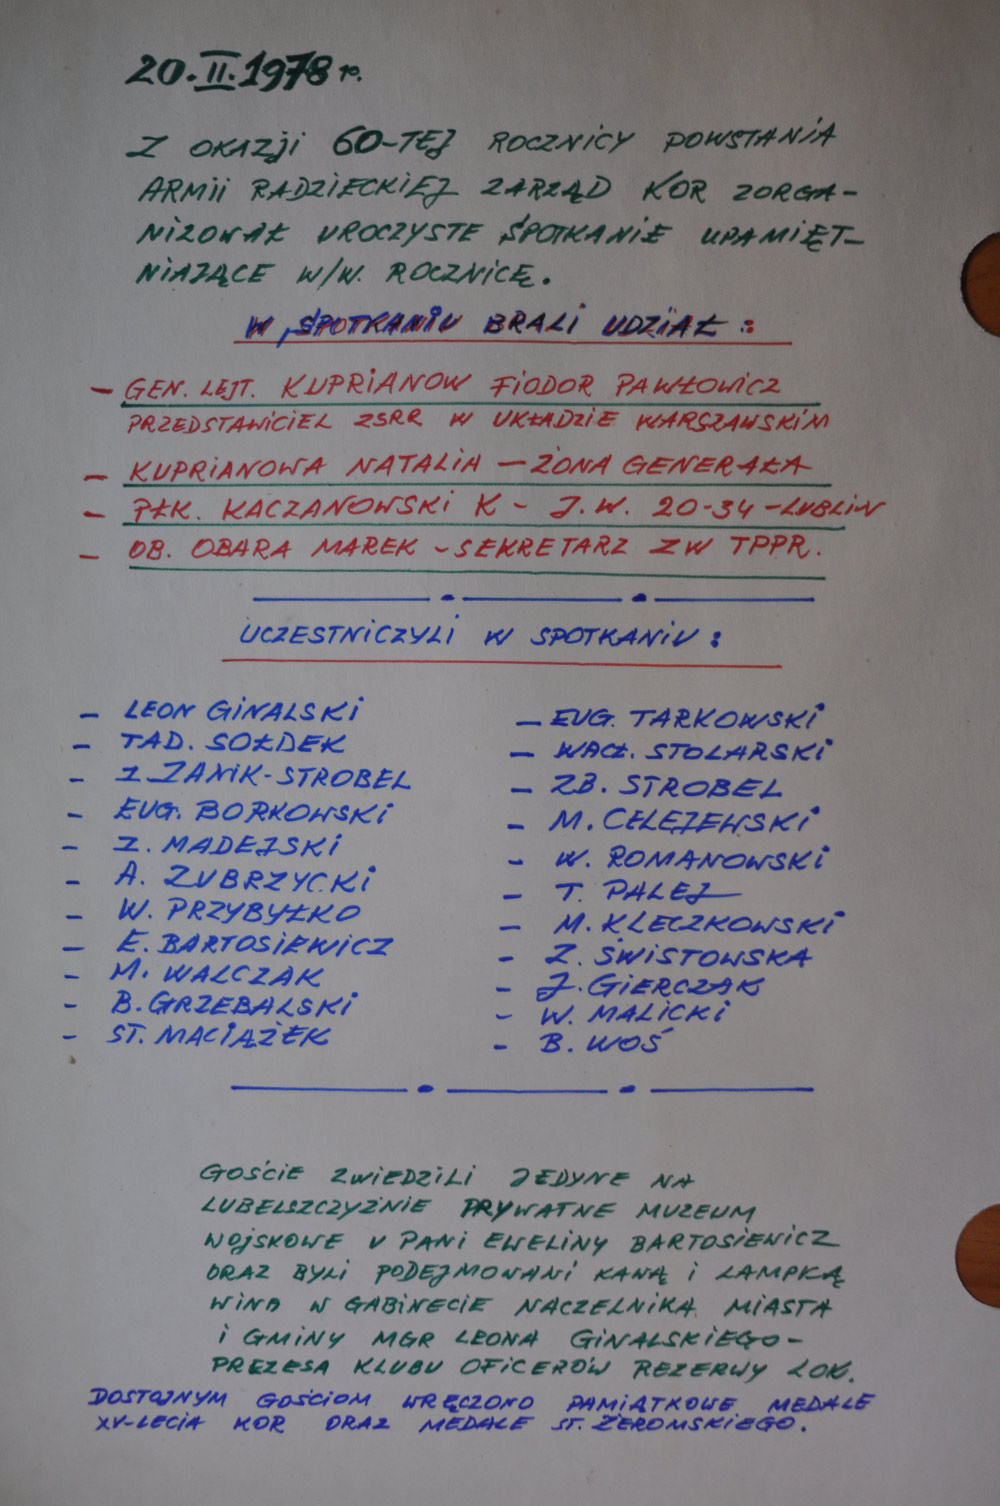 20.II.1978 r.
Z OKAZJI 60-TEJ ROCZNICY POWSTANIA
ARMII RADZIECKIEJ ZARZĄD KOR ZORGA-
NIZOWAŁ UROCZYSTE SPOTKANIE UPAMIĘT-
NIAJĄCE W/W. ROCZNICĘ.
W SPOTKANIU BRALI UDZIAŁ:
- GEN. LEJT. KUPRIANOW FIODOR PAWŁOWICZ
PRZEDSTAWICIEL ZSRR W UKŁADZIE WARSZAWSKIM
- KUPRIANOWA NATALIA - ŻONA GENERAŁA
- PŁK. KACZANOWSKI K - J.W. 20-34 - LUBLIN
- OB. OBARA MAREK - SEKRETARZ ZW TPPR.
UCZESTNICZYLI W SPOTKANIU:
- LEON GINALSKI
- TAD. SOŁDEK
- I. ZANIK-STROBEL
- EUG. BORKOWSKI
- Z. MADEJSKI
- A. ZUBRZYCKI
- W. PRZYBYŁKO
- E. BARTOSIEWICZ
- M. WALCZAK
- B. GRZEBALSKI
- ST. MACIĄŻEK
- EUG. TARKOWSKI
- WACŁ. STOLARSKI
- ZB. STROBEL
- M. CELEJEWSKI
- W. ROMANOWSKI
- T. PALEJ
- M. KLECZKOWSKI
- Z. ŚWISTOWSKA
- J. GIERCZAK
- W. MALICKI
- B. WOŚ
GOŚCIE ZWIEDZILI JEDYNE NA
LUBELSZCZYŹNIE PRYWATNE MUZEUM
WOJSKOWE U PANI EWELINY BARTOSIEWICZ
ORAZ BYLI PODEJMOWANI KAWĄ I LAMPKĄ
WINA W GABINECIE NACZELNIKA MIASTA
I GMINY MGR LEONA GINALSKIEGO-
PREZESA KLUBU OFICERÓW REZERWY LOK.
DOSTOJNYM GOŚCIOM WRĘCZONO PAMIĄTKOWE MEDALE
XV-LECIA KOR ORAZ MEDALE ST. ŻEROMSKIEGO.